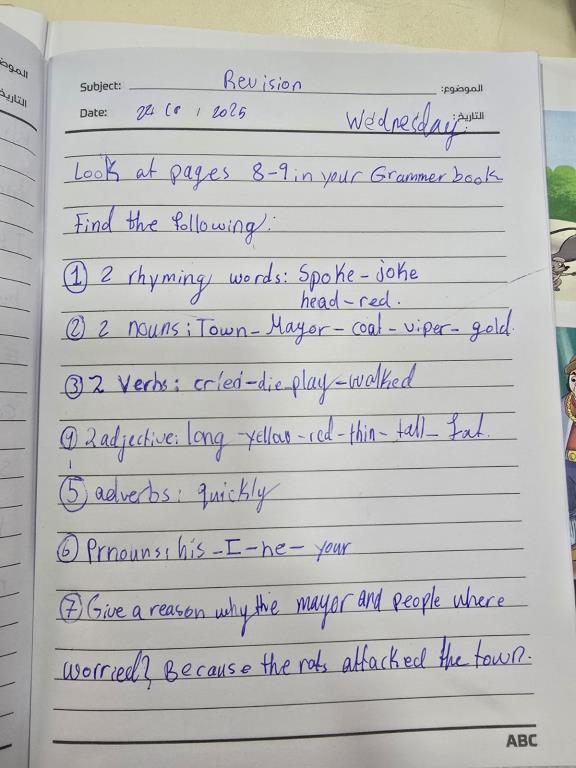 Subject: Revision الموضوع:
Date: 2025 Wednesday التاريخ:
Look at pages 8-9 in your Grammer book
Find the following:
① 2 rhyming words: Spoke - joke
head - red.
② 2 nouns: Town - Mayor - coat - viper - gold.
③ 2 Verbs: cried - die - play - walked
④ 2 adjective: long - yellow - red - thin - tall - fat.
⑤ adverbs: quickly
⑥ Prnouns: his - I - he - your
⑦ Give a reason why the mayor and people where
worried? Because the rats attacked the town.
ABC